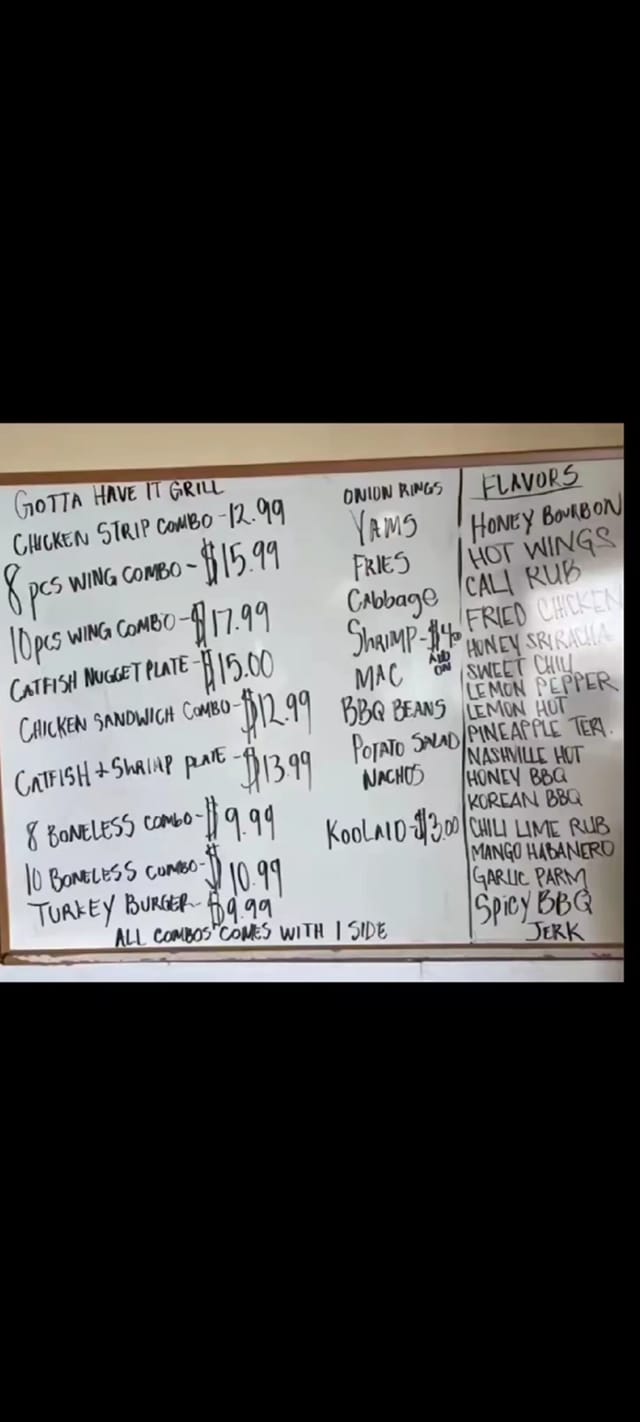 GOTTA HAVE IT GRILL
CHICKEN STRIP COMBO - 12.99
8 PCS WING COMBO - $15.99
10 PCS WING COMBO - $17.99
CATFISH NUGGET PLATE - $15.00
CHICKEN SANDWICH COMBO - $12.99
CATFISH + SHRIMP PLATE - $13.99
8 BONELESS COMBO - $9.99
10 BONELESS COMBO - $10.99
TURKEY BURGER - $9.99
ALL COMBOS COMES WITH 1 SIDE
ONION RINGS
YAMS
FRIES
CABBAGE
SHRIMP - $4.00
ADD ON
MAC
BBQ BEANS
POTATO SALAD
NACHOS
KOOLAID - $3.00
FLAVORS
HONEY BOURBON
HOT WINGS
CALI RUB
FRIED CHICKEN
HONEY SRIRACHA
SWEET CHILI
LEMON PEPPER
LEMON HOT
PINEAPPLE TERI.
NASHVILLE HOT
HONEY BBQ
KOREAN BBQ
CHILI LIME RUB
MANGO HABANERO
GARLIC PARM
SPICY BBQ
JERK